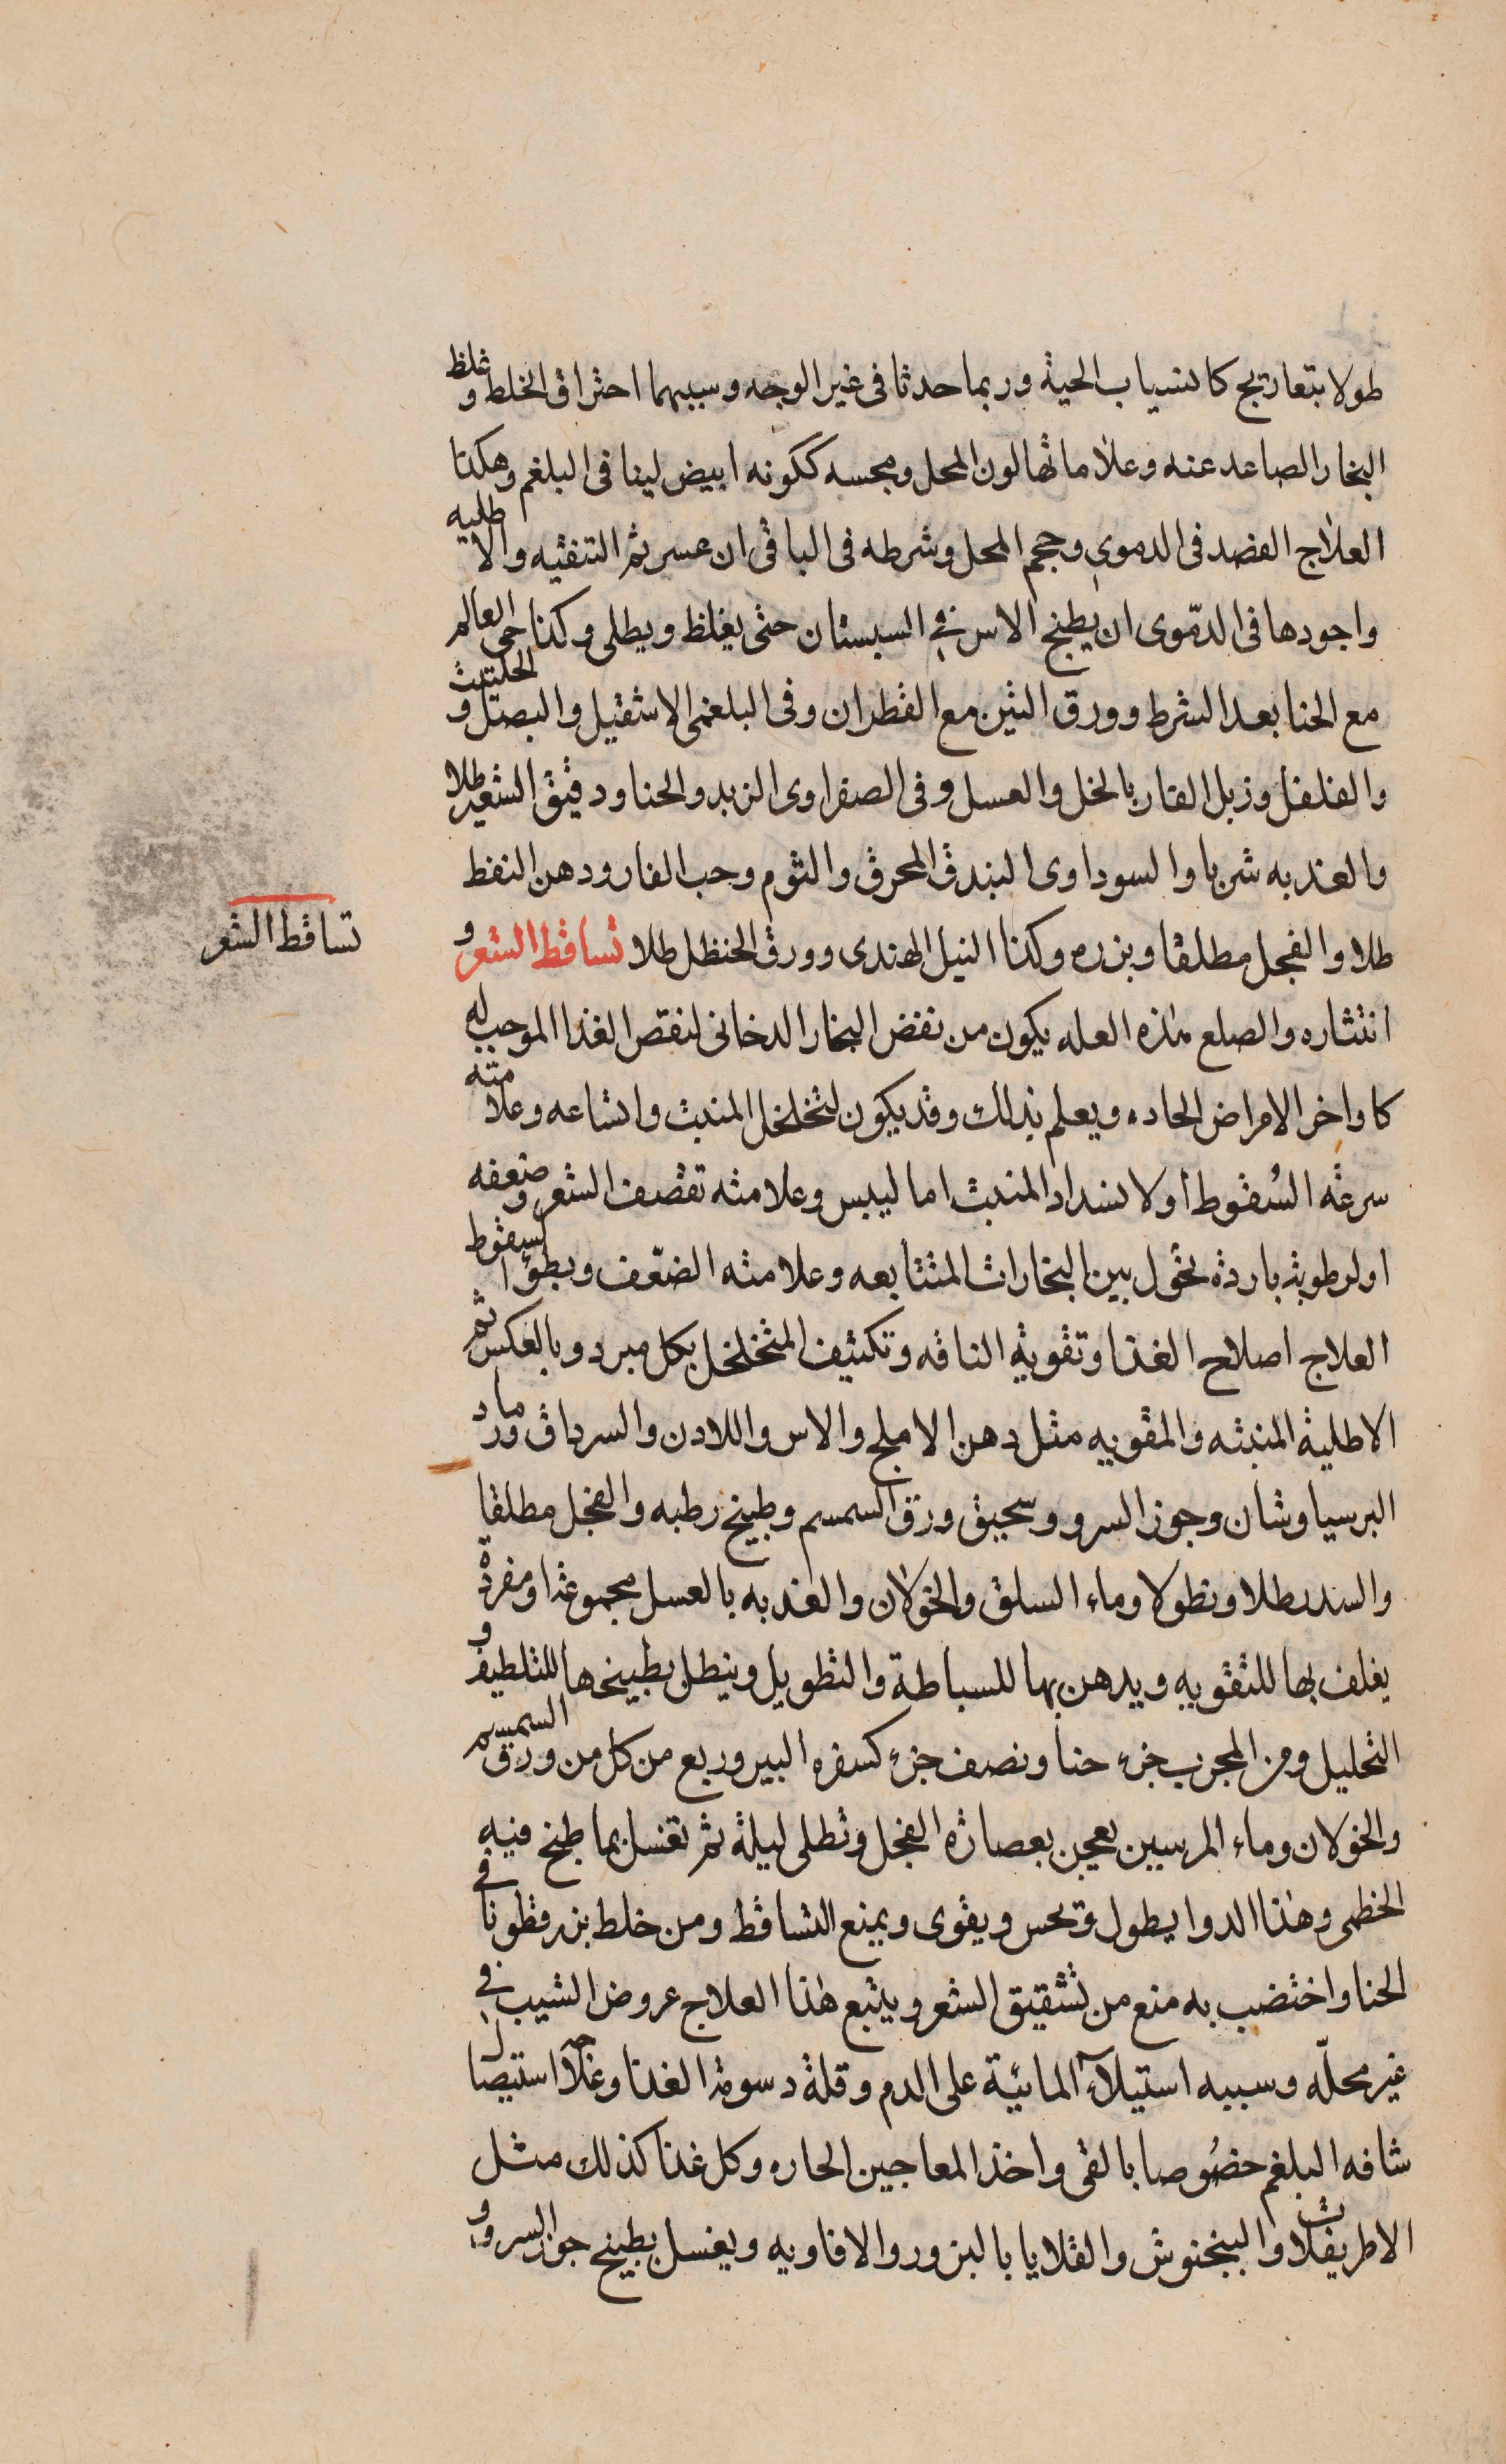 طولا بتعاريج كانسياب الحية وربما حدثا فى غير الوجه وسببهما احتراق الخلط وغلظ
البخار الصاعد عنه وعلاماتها لون المحل ومجسه ككونه ابيض لينا فى البلغم وهكذا
العلاج الفصد فى الدموى وحجم المحل وشرطه فى الباقى ان عسر ثم التنقيه والاطليه
واجودها فى الدموى ان يطبخ الاس فى السبستان حتى يغلظ ويطلى وكذا حى العالم
مع الحنا بعد الشرط وورق التين مع القطران وفى البلغمى الاشقيل والبصل والحلتيت
والفلفل وزبل الفار بالخل والعسل وفى الصفراوى الزبد والحنا ودقيق الشعير طلا
والعذبه شربا والسوداوى البندق المحرق والثوم وحب الغار ودهن النفط
طلا والفجل مطلقا وبزره وكذا النيل الهندى وورق الحنظل طلا تساقط الشعر و
تساقط الشعر
انتثاره والصلع هذه العله يكون من نقض البخار الدخانى لنقص الغذا الموجب له
كاواخر الامراض الحاده ويعلم بذلك وقد يكون لتخلخل المنبت واتساعه وعلامته
سرعة السقوط أو لانسداد المنبت اما ليبس وعلامته تقصف الشعر وضعفه
او لرطوبة باردة تحول بين البخارات المتتابعه وعلامته الضعف وبطوء السقوط
العلاج اصلاح الغذا وتقوية الناقه وتكثيف المتخلخل بكل مبرد وبالعكس ثم
الاطلية المنبته والمقويه مثل دهن الاملج والاس واللادن والسرداق ورماد
البرسياوشان وجوز السرو وسحيق ورق السمسم وطبيخ رطبه والفجل مطلقا
والسدر طلا ونطولا وماء السلق والخولان والعذبه بالعسل مجموعة او مفردة
يغلف بها للتقويه ويدهن بها للسباطة والتطويل وينطل بطبيخها للتلطيف و
التحليل ومن المجرب جزء حنا ونصف جزء كسفره البير وربع من كل من ورق السمسم
والخولان وماء المرسين يعجن بعصارة الفجل وتطلى ليلة ثم تغسل بما طبخ فيه
الخطمى وهذا الدوا يطول ويحسن ويقوى ويمنع التساقط ومن خلط بزرقطونا فى
الحنا واختضب به منع من تشقيق الشعر ويتبع هذا العلاج عروض الشيب فى
غير محله وسببه استيلاء المائية على الدم وقلة دسومة الغذا وعلاجه استيصال
شافه البلغم خصوصا بالقى واخذ المعاجين الحاره وكل غذا كذلك مثل
الاطريفلات والبنجنوش والقلايا بالبزور والافاويه ويغسل بطبيخ جوز السرو و